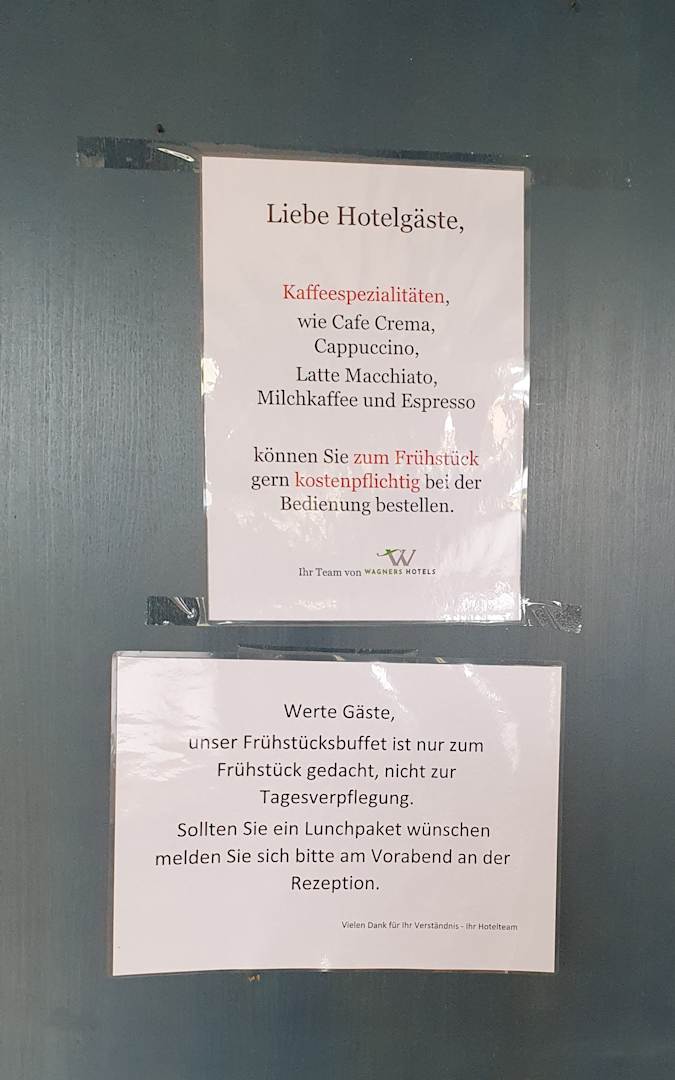 Liebe Hotelgäste,
Kaffeespezialitäten,
wie Cafe Crema,
Cappuccino,
Latte Macchiato,
Milchkaffee und Espresso
können Sie zum Frühstück
gern kostenpflichtig bei der
Bedienung bestellen.
Ihr Team von WAGNERS HOTELS
Werte Gäste,
unser Frühstücksbuffet ist nur zum
Frühstück gedacht, nicht zur
Tagesverpflegung.
Sollten Sie ein Lunchpaket wünschen
melden Sie sich bitte am Vorabend an der
Rezeption.
Vielen Dank für Ihr Verständnis - Ihr Hotelteam